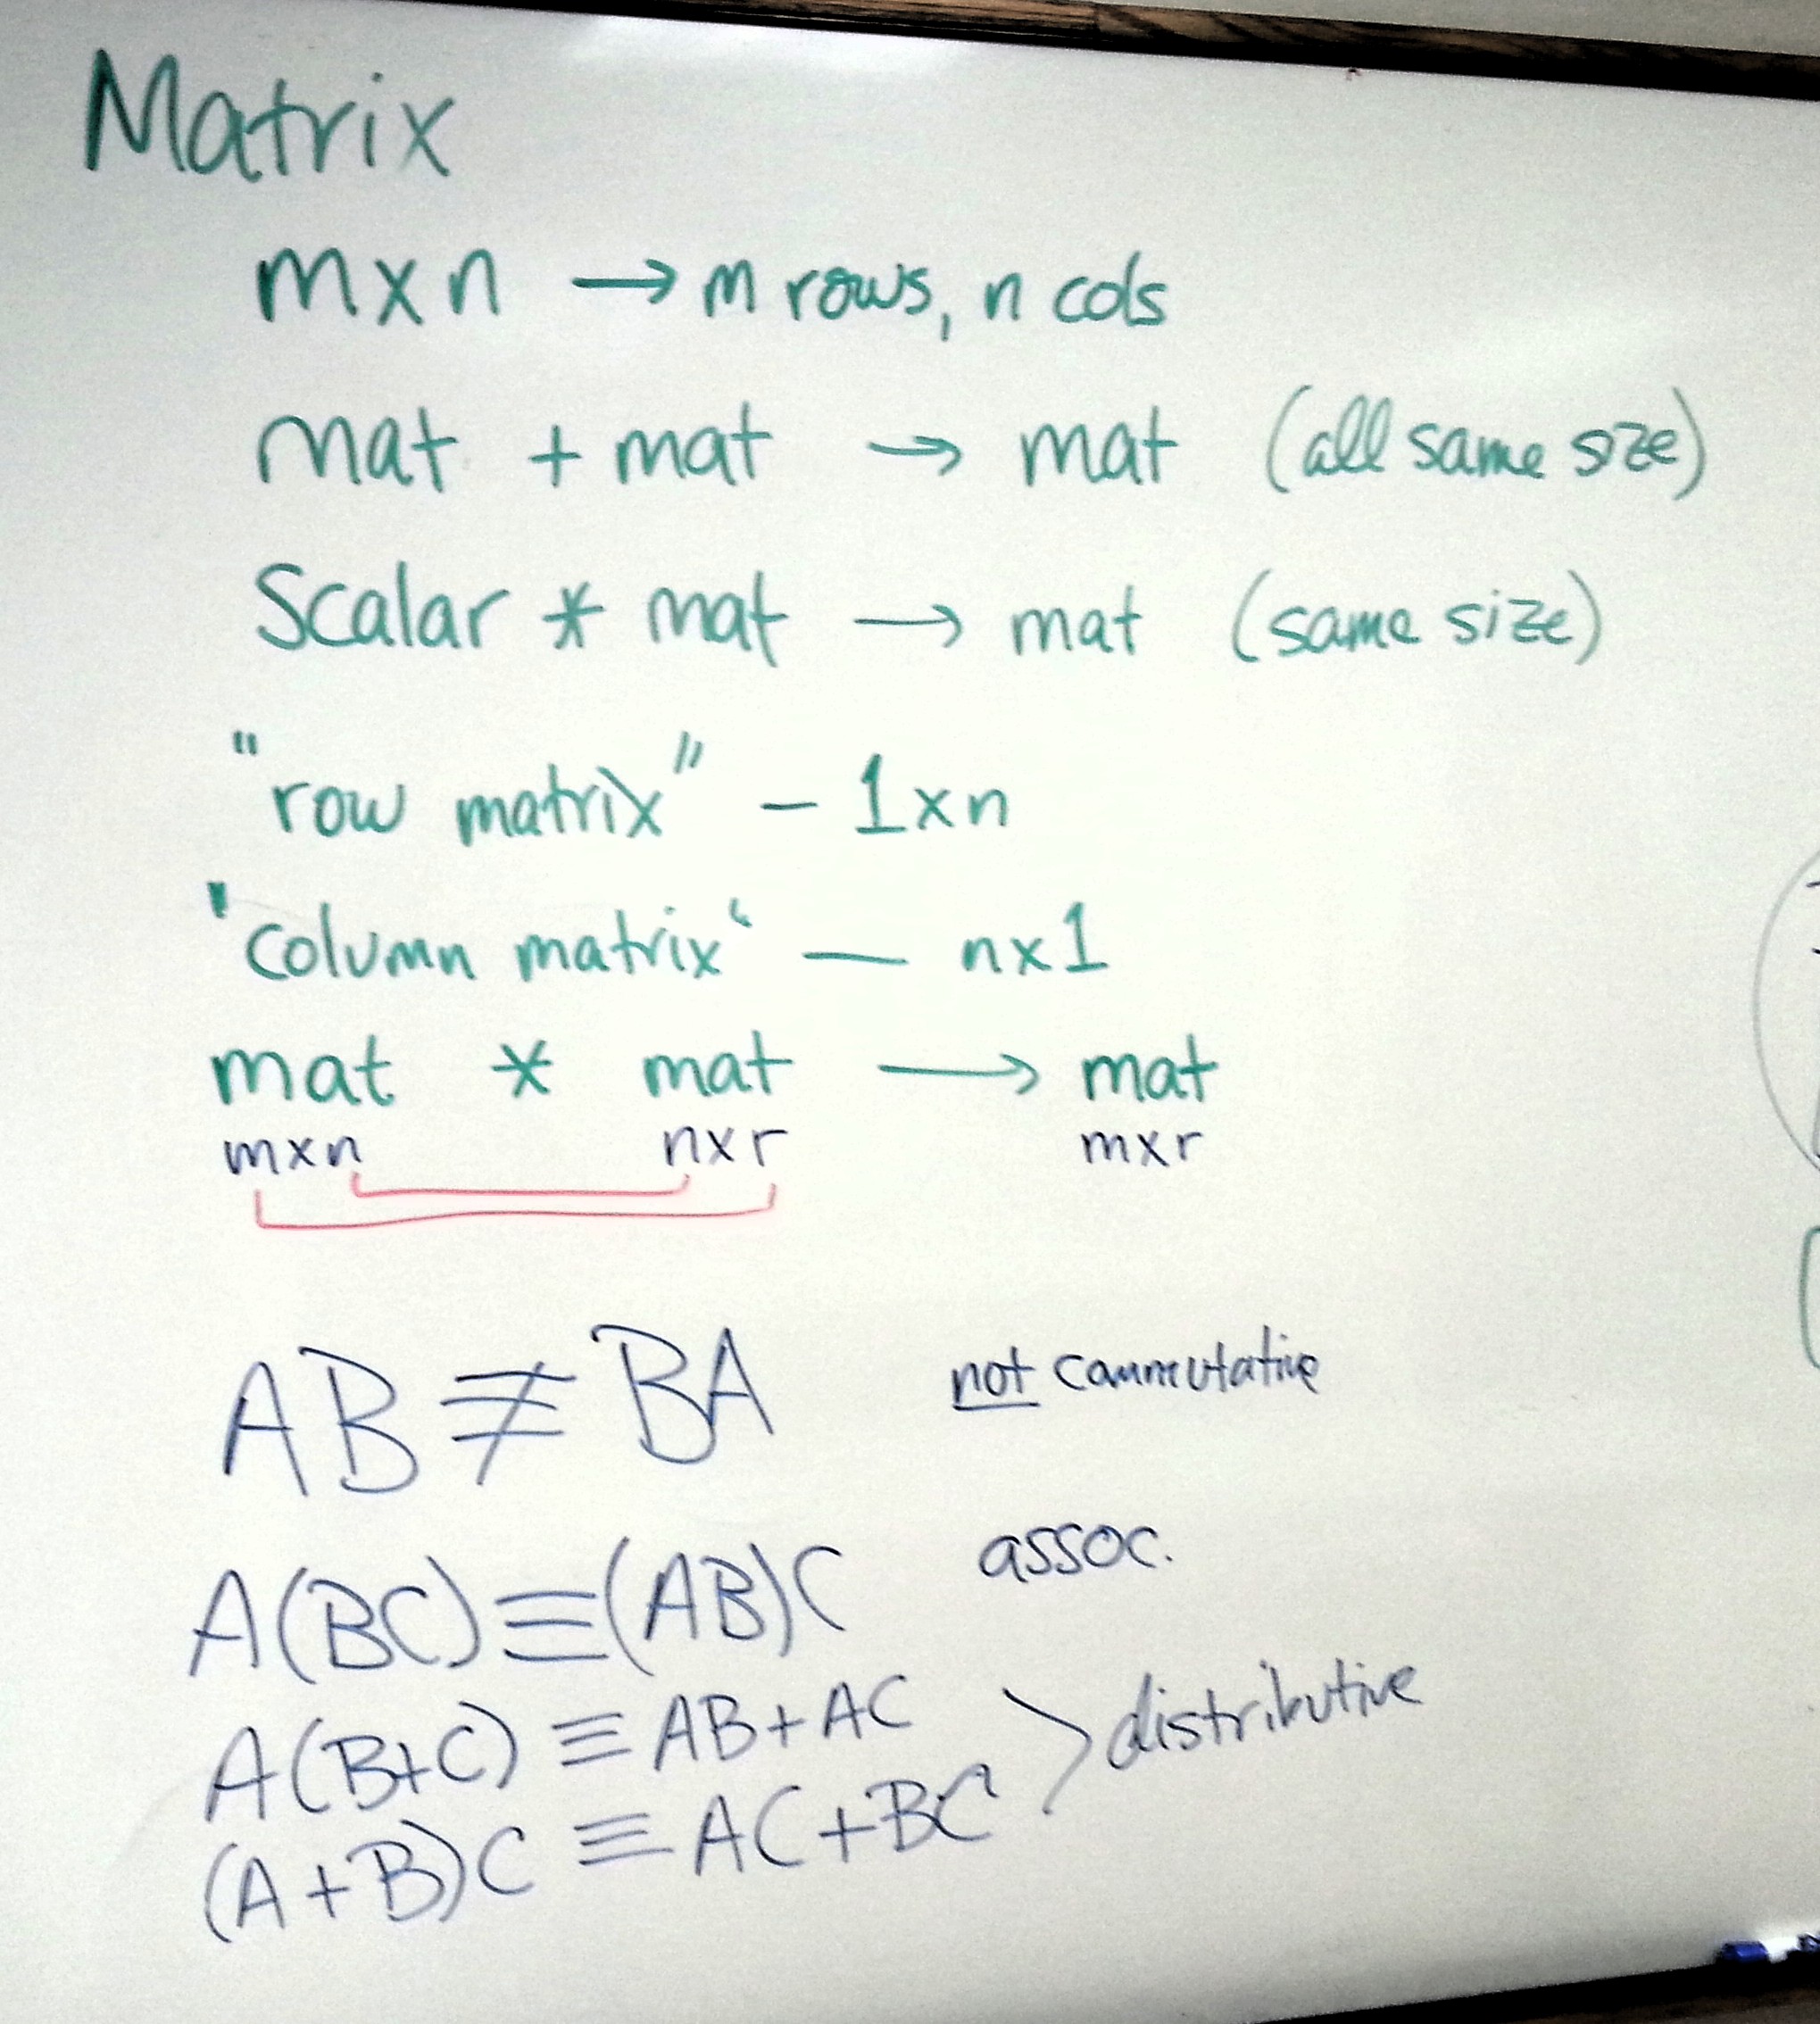 Matrix
m x n → m rows, n cols
mat + mat → mat (all same size)
Scalar * mat → mat (same size)
"row matrix" - 1 x n
"column matrix" — n x 1
mat * mat → mat
m x n n x r m x r
AB ≢ BA not commutative
A(BC) ≡ (AB)C assoc.
A(B+C) ≡ AB+AC > distributive
(A+B)C ≡ AC+BC